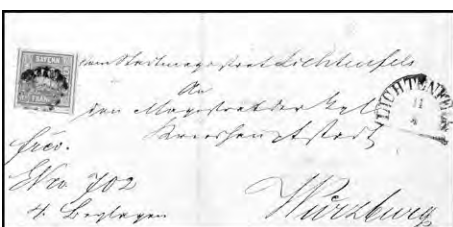 BAYERN
FRANCO
Vom Stadtmagistrat Lichtenfels
An
den Magistrat der Kgl.
Kreishauptstadt
LICHTENFELS
11
frco.
Nro 702
4. Beylagen
Würzburg